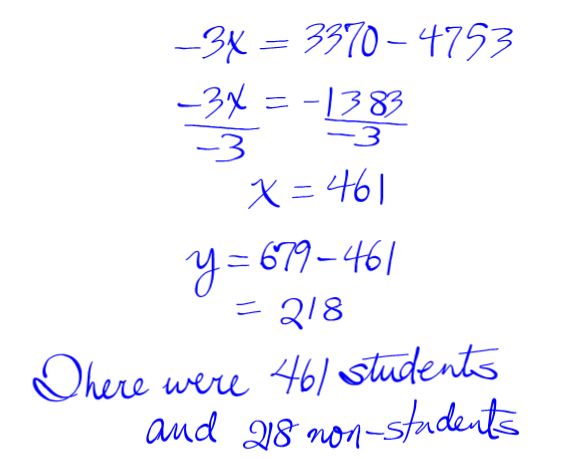 -3x = 3370 - 4753
-3x = -1383
-3 -3
x = 461
y = 679 - 461
= 218
There were 461 students
and 218 non-students